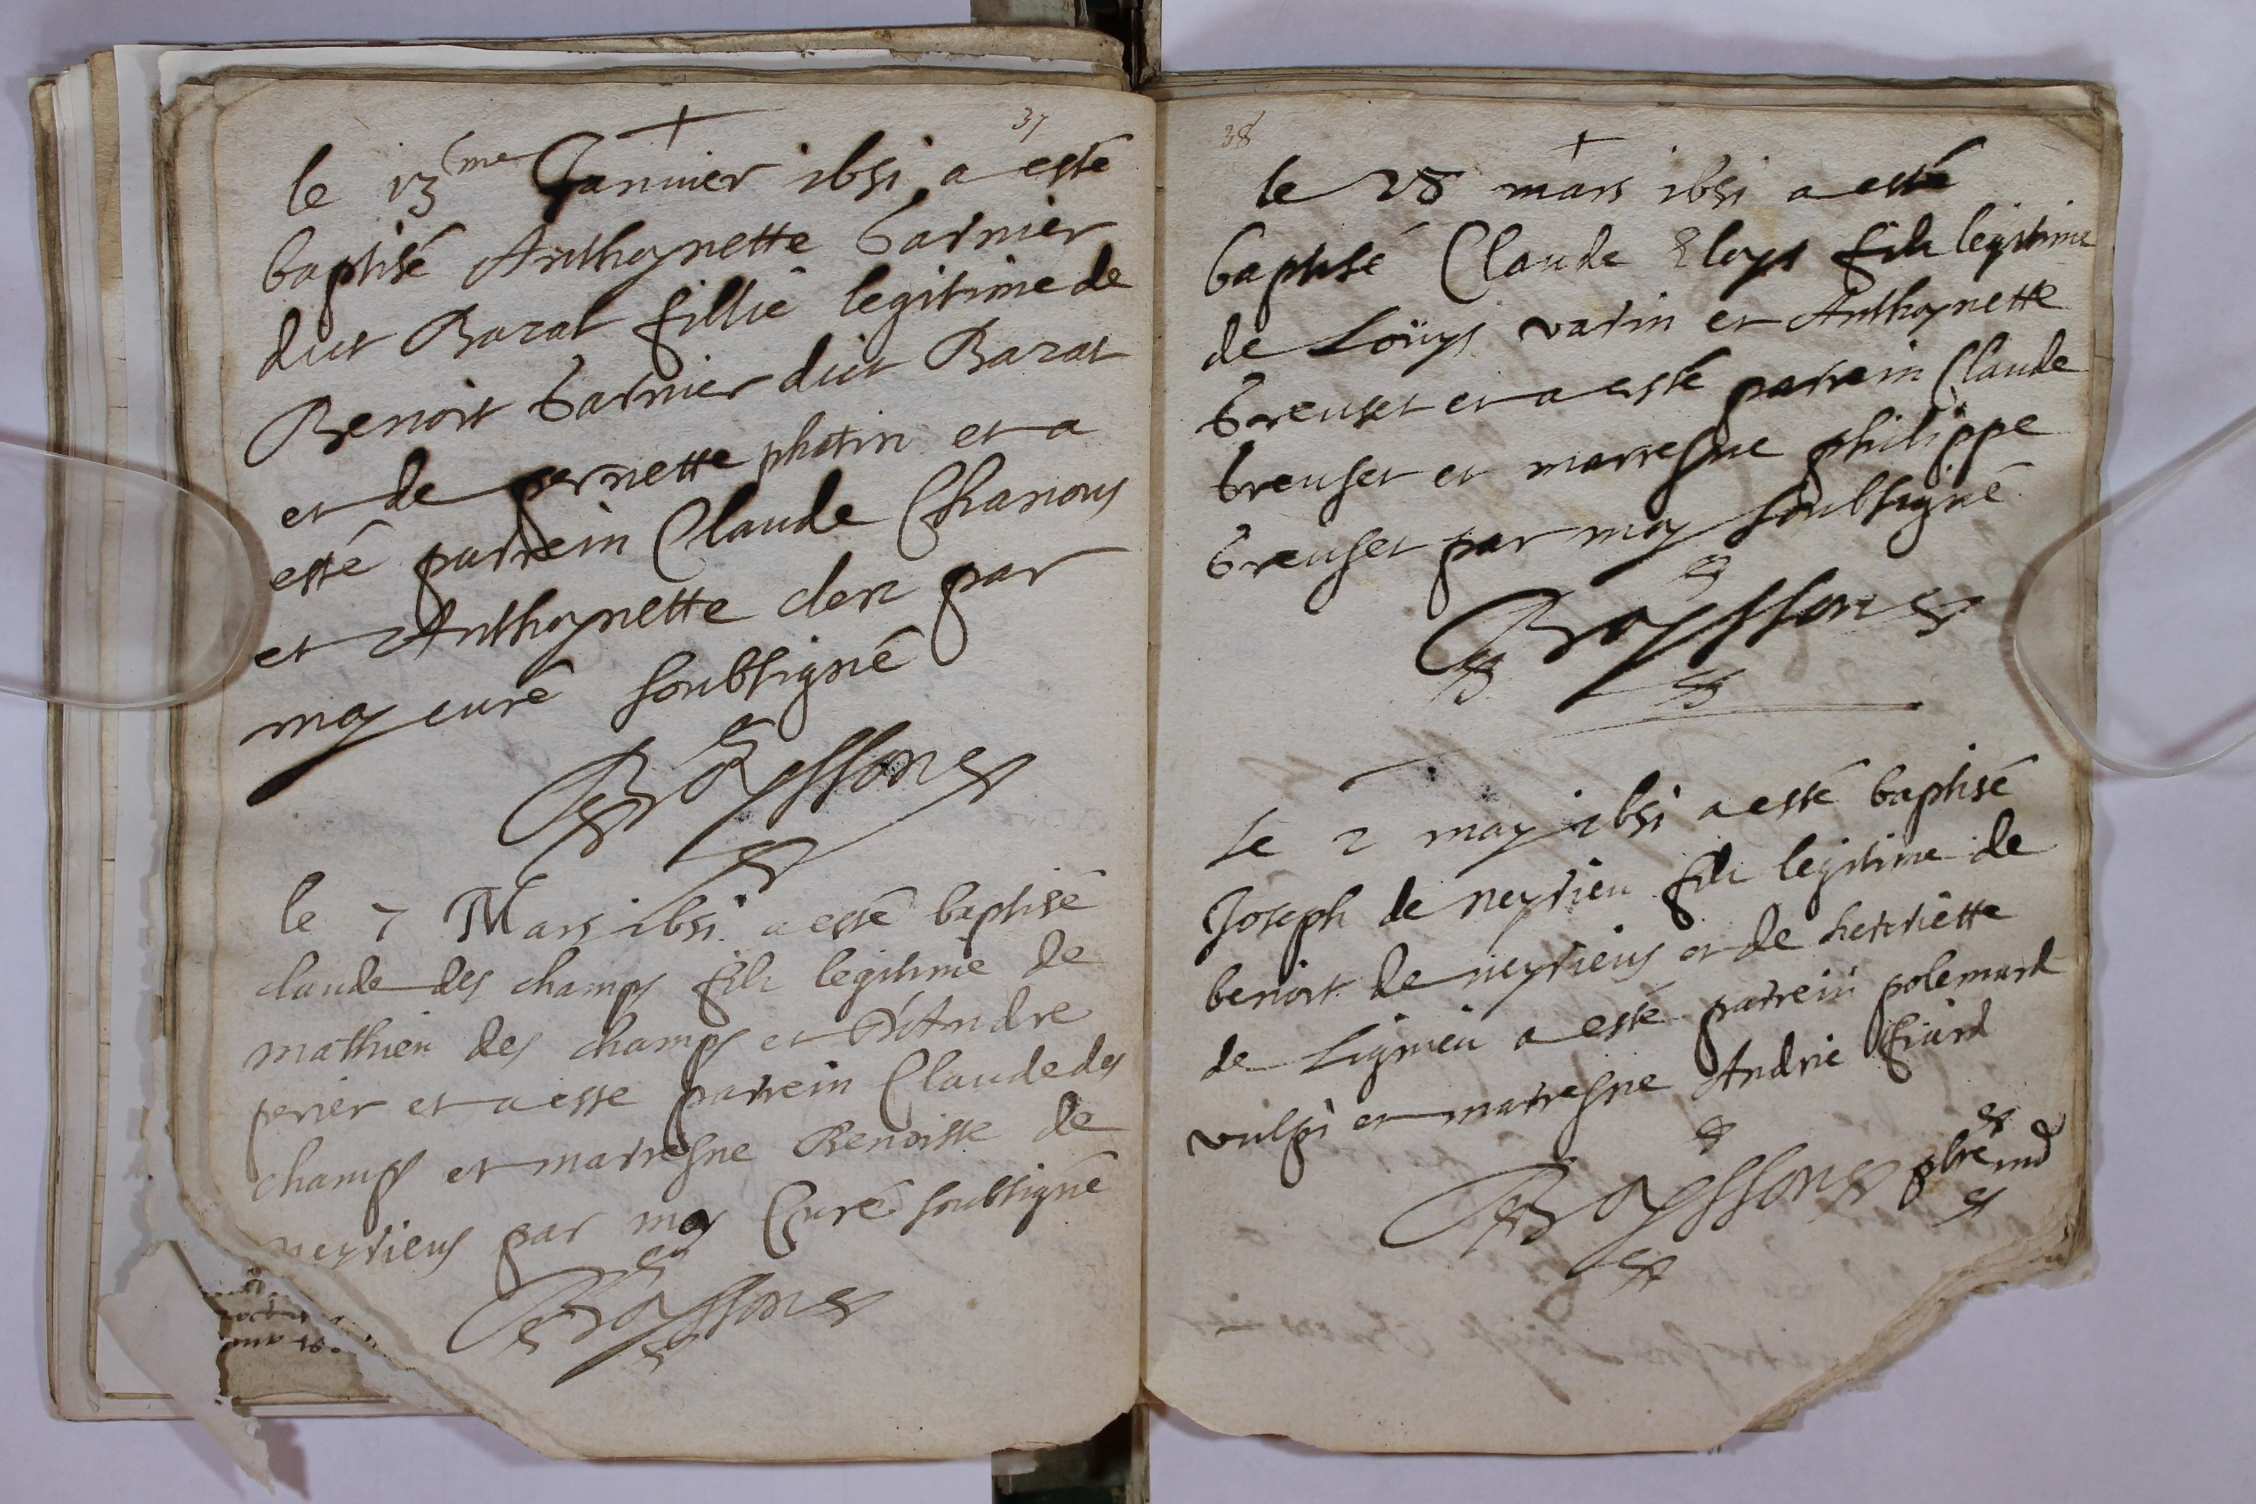 37
le 13me Januier 1651 a esté
baptisé Anthoynette Garnier
dict Bazat fillie legitime de
Benoit Garnier dict Bazat
et de pernette phatin et a
esté parrein Claude Chanous
et Anthoynette clerc par
moy curé soubsigné
Boyssons
le 7 Mars 1651 a esté baptisé
claude des champs filz legitime de
mathieu des champs et d'Andre
perier et a este parrein Claude des
champs et marresne Benoiste de
neyrieus par moy Curé soubsigné
Boyssons
38
le 28 mars 1651 a esté
baptisé Claude Eloys filz legitime
de Loüys varin et Anthoynette
Greuset et a esté parrein Claude
Greuset et marresne philippe
Greuset par moy soubsigné
Boyssons
Le 2 may 1651 a esté baptisé
Joseph de neyrieu filz legitime de
benoit de neyrieus et de henriette
de Lignieu a esté parrein polemard
vulpi et marresne Andrie fiard
Boyssons pbre ind